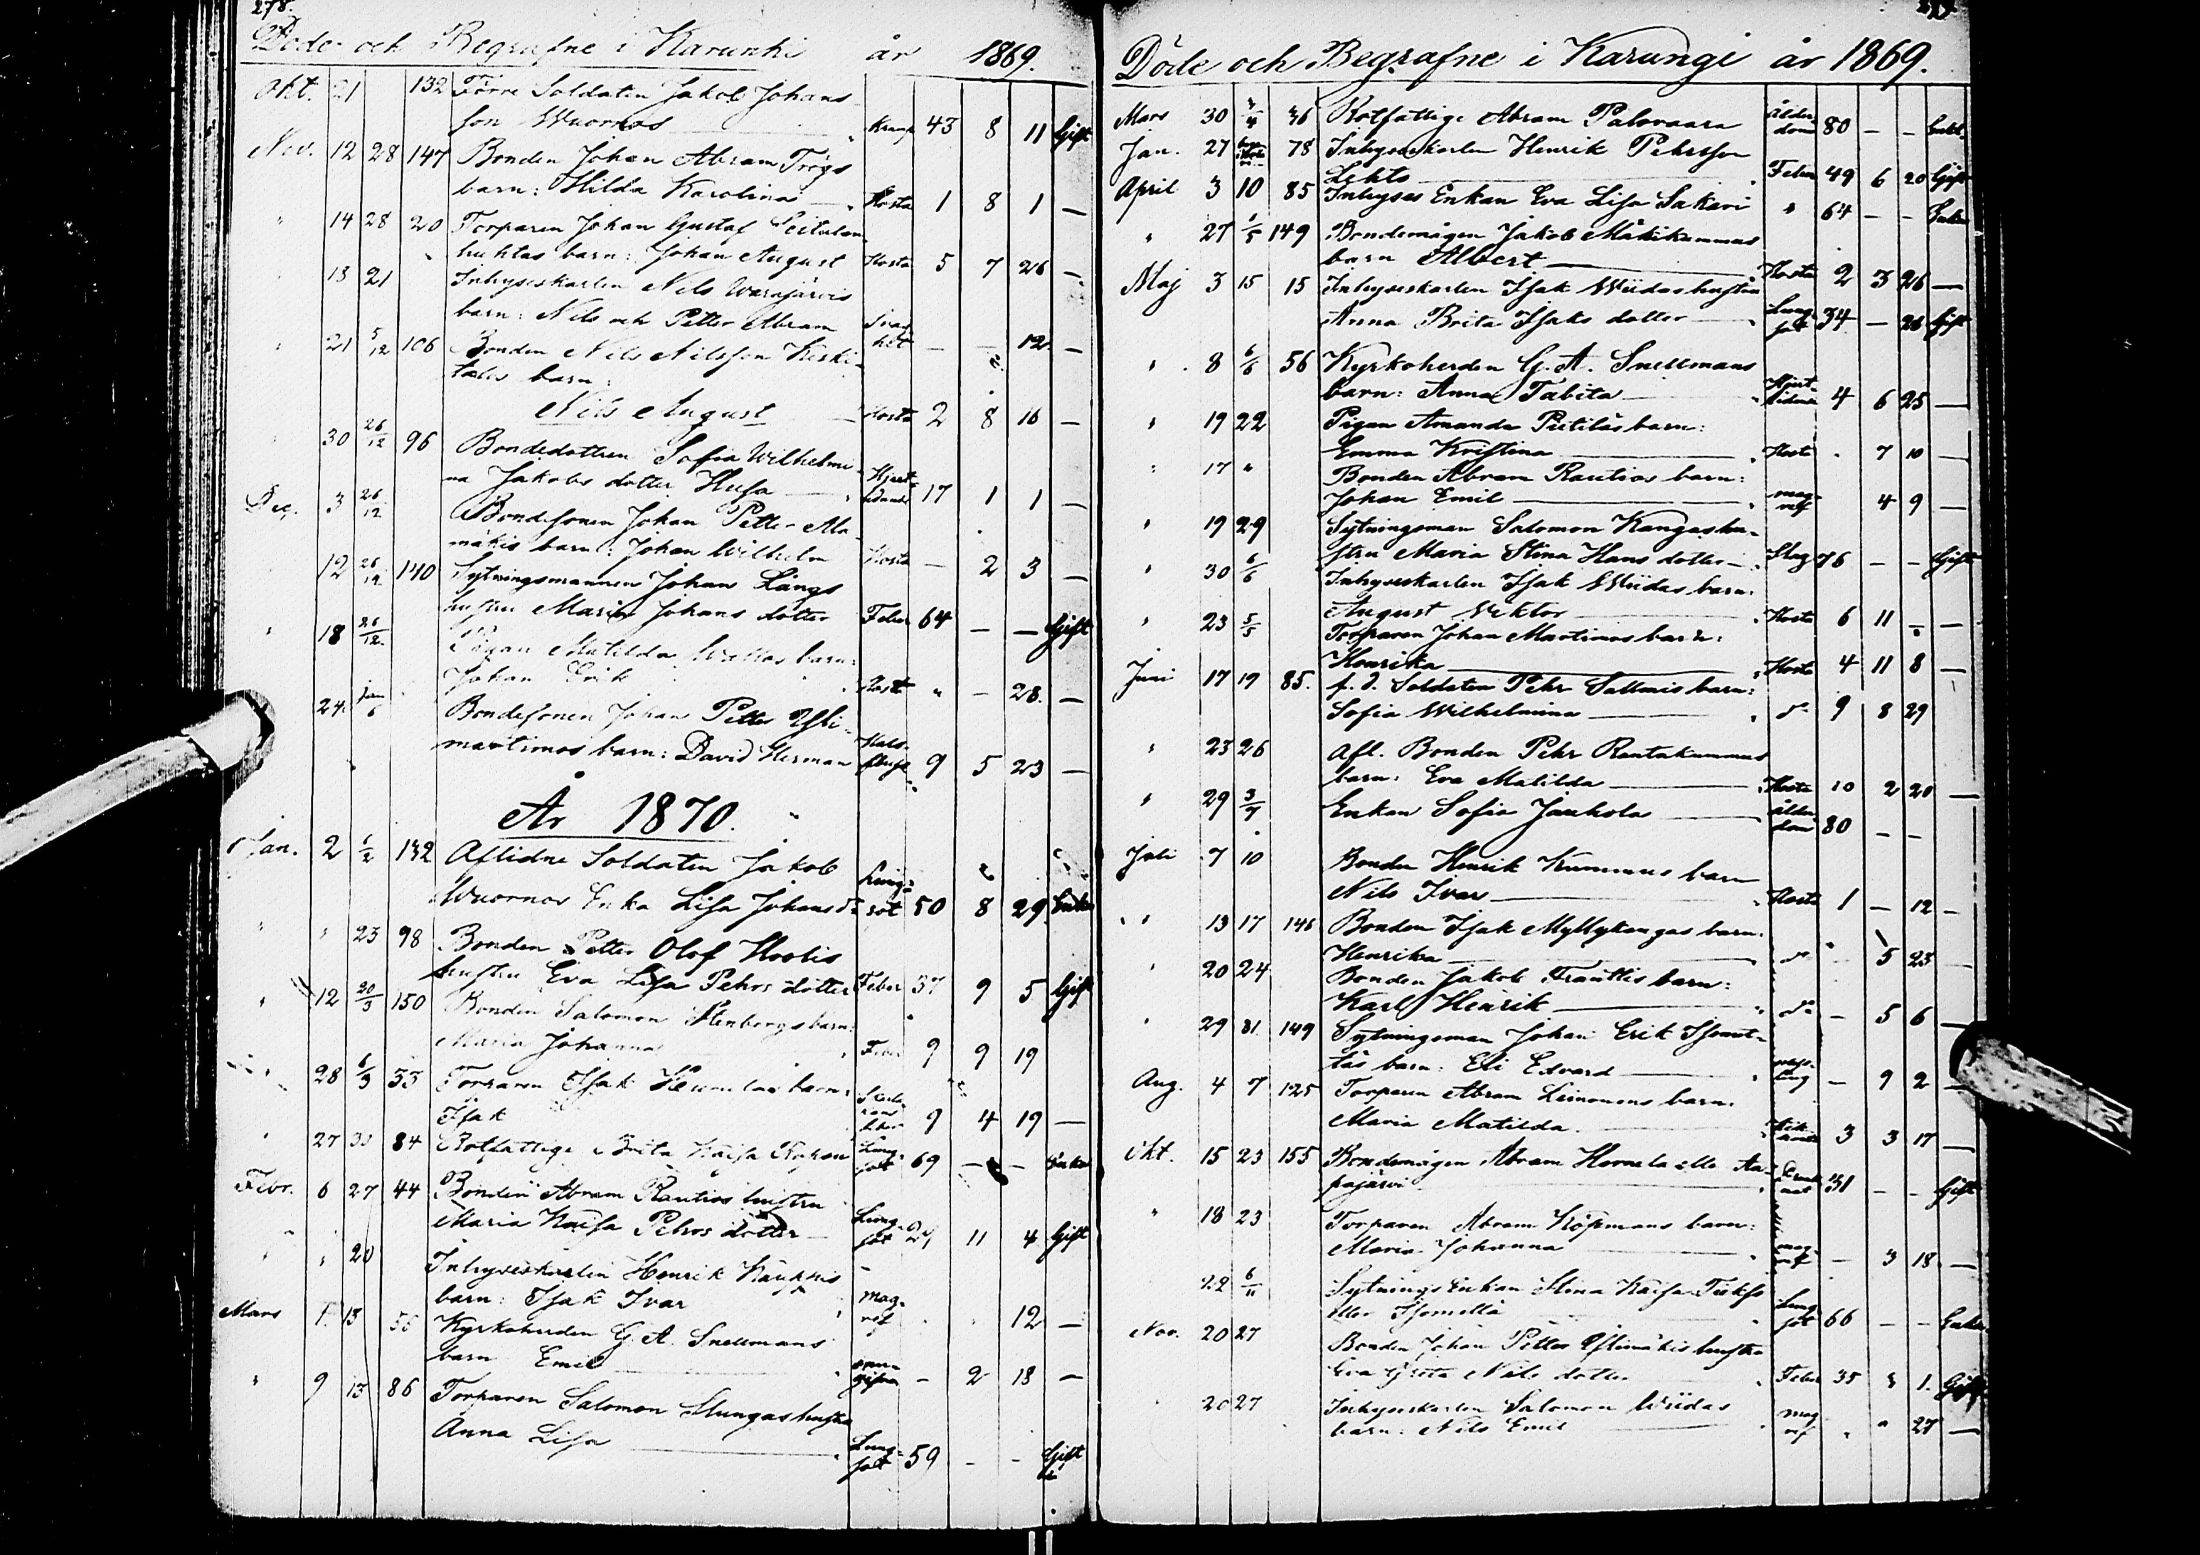 278.
Döde och Begrafne i Karunki år 1869.
Okt. 21 132 Förre Soldaten Jakob Johans
son Wuornos Kramp 43 8 11 Gift
Nov. 12 28 147 Bonden Johan Abram Frögs
barn: Hilda Karolina Hosta 1 8 1 —
" 14 28 20 Torparen Johan Gustaf
huhtas barn: Johan August Hosta 5 7 26 —
13 21 Inhyseskarlen Nils Warajärvis
barn: Nils och Petter Abram — — 12 —
21 5/12 106 Bonden Nils Nilsson Keski-
talos barn:
Nils August Hosta 2 8 16 —
30 26/12 96 Bondedottren Sofia Wilhelmi-
na Jakobs dotter Husa 17 1 1 —
Dec. 3 26/12 Bondesonen Johan Petter Ala-
mäkis barn: Johan Wilhelm Hosta — 2 3 —
12 26/12 140 Sytningsmannen Johan Längs
hustru Maria Johans dotter Feber 64 — — Gift
" 18 26/12 Pigan Matilda barn:
Johan Erik " — 28 —
24 Jan 6 Bondesonen Johan Petter Yli-
martimos barn: David Herman Hals-
9 5 23 —
År 1870.
Jan. 2 1/2 132 Aflidne Soldaten Jakob
Wuornos Enka Lisa Johans dr Lung-
sot 50 8 29 Enka
" " 23 98 Bonden Petter Olof
hustru Eva Lisa Pehrs dotter Feber 37 9 5 Gift
" 12 20/3 150 Bonden Salomon Stenborgs barn:
Maria Johanna 9 9 19
28 6/3 33 Torparen Isak barn:
Isak 9 4 19 —
" 27 30 84 Rotfattige Brita Kaisa Lung-
sot 69 — — Enka
Febr. 6 27 44 Bonden Abram Rautios hustru
Maria Kaisa Pehrs dotter Lung-
sot 11 4 Gift
" " 20 Inhyseskarlen Henrik Kauppis
barn: Isak Ivar mag-
ref 12 —
Mars 13 56 Kyrkoherden G. A. Snellmans
barn Emil — 2 18 —
" 9 13 86 Torparen Salomon Slungas hustru
Anna Lisa Lung-
sot 59 - - Gift
279.
Döde och Begrafne i Karungi år 1869.
Mars 30 3/4 36 Rotfattige Abram Palovaara Ålder
dom 80 — — Enkl.
Jan. 27 78 Inhyseskarlen Henrik Pehrsson
Lehto Feber 49 6 20 Gift
April 3 10 85 Inhyses Enkan Eva Lisa Sakari " 64 — — Enka
" 27 1/5 149 Bondemågen Jakob Mäkikummus
barn Albert Hosta 2 3 26 —
Maj 3 15 15 Inhyseskarlen Isak Wiidas hustru
Anna Brita Isaks dotter Lung-
sot 34 — 26 Gift
" 8 6/6 56 Kyrkoherden G. A. Snellmans
barn: Anna Tabita Hjert-
4 6 25 —
" 19 22 Pigan Amanda barn:
Emma Kristina Hosta . 7 10 —
" 17 " Bonden Abram Rautios barn:
Johan Emil mag-
ref 4 9 —
" 19 29 Sytningsman Salomon Kangas hu-
stru Maria Stina Hans dotter Slag 76 — — Gift
" 30 6/6 Inhyseskarlen Isak Wiidas barn:
August Viktor Hosta 6 11 — —
" 23 5/5 Torparen Johan Martimos barn:
Henrika Hosta 4 11 8 —
Juni 17 19 85. f. d. Soldaten Pehr barn:
Sofia Wilhelmina d:o 9 8 29
" 23 26 Afl. Bonden Pehr Rantakummus
barn: Eva Matilda Hosta 10 2 20 —
" 29 3/7 Enkan Sofia Jauhola Ålder
dom 80 — —
Juli 7 10 Bonden Henrik Kummus barn
Nils Ivar Hosta 1 — 12 —
" 13 17 146 Bonden Isak Myllykangas barn:
Henrika d:o 5 23 —
" 20 24 Bonden Jakob barn:
Karl Henrik d:o — 5 6 —
" 29 31 149 Sytningsman Johan Erik
barn: Eli Edvard — 9 2 —
Aug. 4 7 125 Torparen Abram barn:
Maria Matilda 3 3 17 —
Okt. 15 23 155 Bondemågen Abram eller Aa-
pajärvi 31 — — Gift
" 18 23 Torparen Abram Köpmans barn:
Maria Johanna mag-
ref — 3 18 —
22 6/11 Sytnings Enkan Stina Kaisa
eller Lung-
sot 66 — — Enka
Nov. 20 27 Bonden Johan Petter hustru
Eva Greta Nils dotter Feber 35 1. Gift
20 27 Inhyseskarlen Salomon Wiidas
barn: Nils Emil mag-
ref " " 27 —